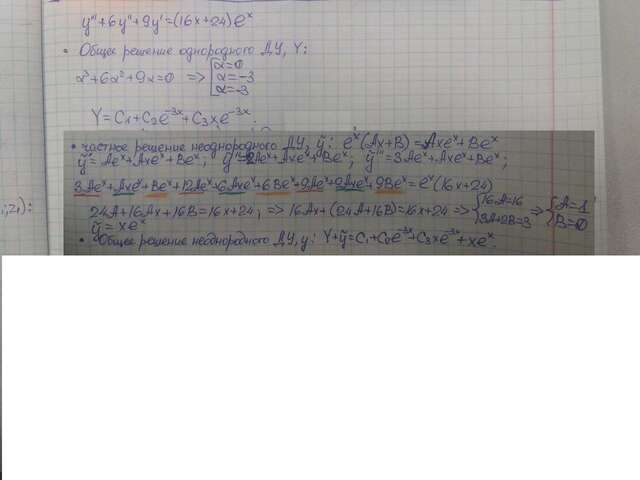 y'''+6y''+9y'=(16x+24)eˣ
• Общее решение однородного ДУ, Y:
α³+6α²+9α=0 => [α=0
α=-3
α=-3
Y=C₁+C₂e⁻³ˣ+C₃xe⁻³ˣ.
• частное решение неоднородного ДУ, ỹ: eˣ(Ax+B)=Axeˣ+Beˣ
ỹ'=Aeˣ+Axeˣ+Beˣ; ỹ''=2Aeˣ+Axeˣ+Beˣ; ỹ'''=3Aeˣ+Axeˣ+Beˣ;
3Aeˣ+Axeˣ+Beˣ+12Aeˣ+6Axeˣ+6Beˣ+9Aeˣ+9Axeˣ+9Beˣ=eˣ(16x+24)
24A+16Ax+16B=16x+24; => 16Ax+(24A+16B)=16x+24 => {16A=16 => {A=1
3A+2B=3 B=0
ỹ=xeˣ
• Общее решение неоднородного ДУ, y: Y+ỹ=C₁+C₂e⁻³ˣ+C₃xe⁻³ˣ+xeˣ.
;2₁):